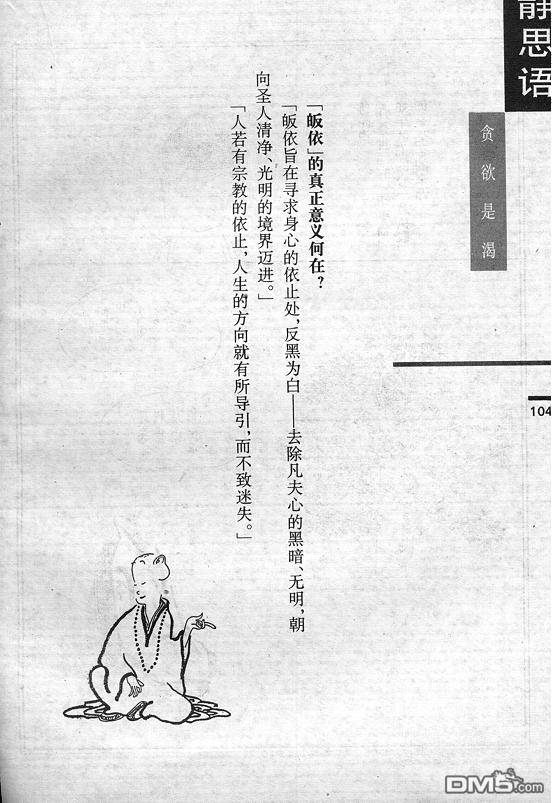 静思语
贪欲是渴
104
「皈依」的真正意义何在？
「皈依旨在寻求身心的依止处，反黑为白——去除凡夫心的黑暗、无明，朝
向圣人清净、光明的境界迈进。」
「人若有宗教的依止，人生的方向就有所导引，而不致迷失。」
DM5.com